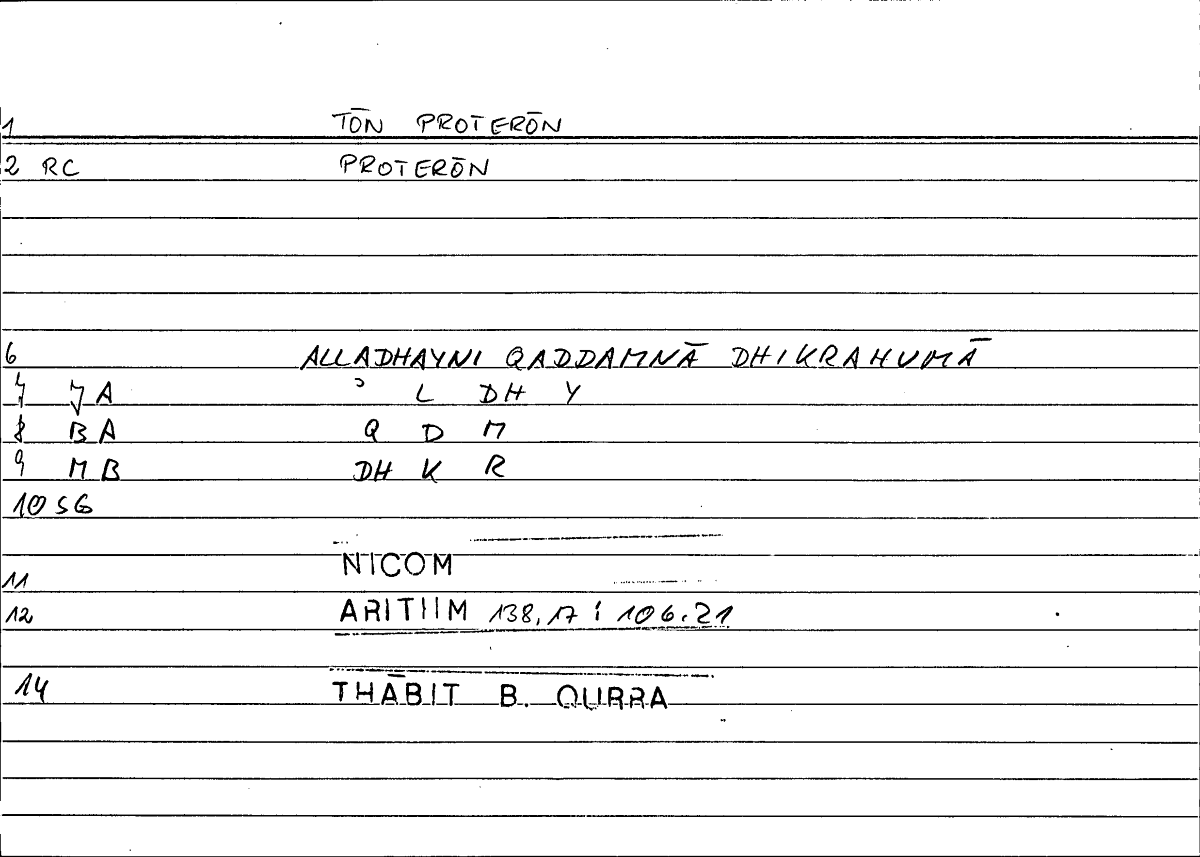 1 TŌN PROTERŌN
2 RC PROTERŌN
6 ALLADHAYNI QADDAMNĀ DHIKRAHUMĀ
7 JA ʾ L DH Y
8 BA Q D M
9 MB DH K R
10 SG
11 NICOM
12 ARITIIM 138,17 ; 106.21
14 THĀBIT B. QURRA